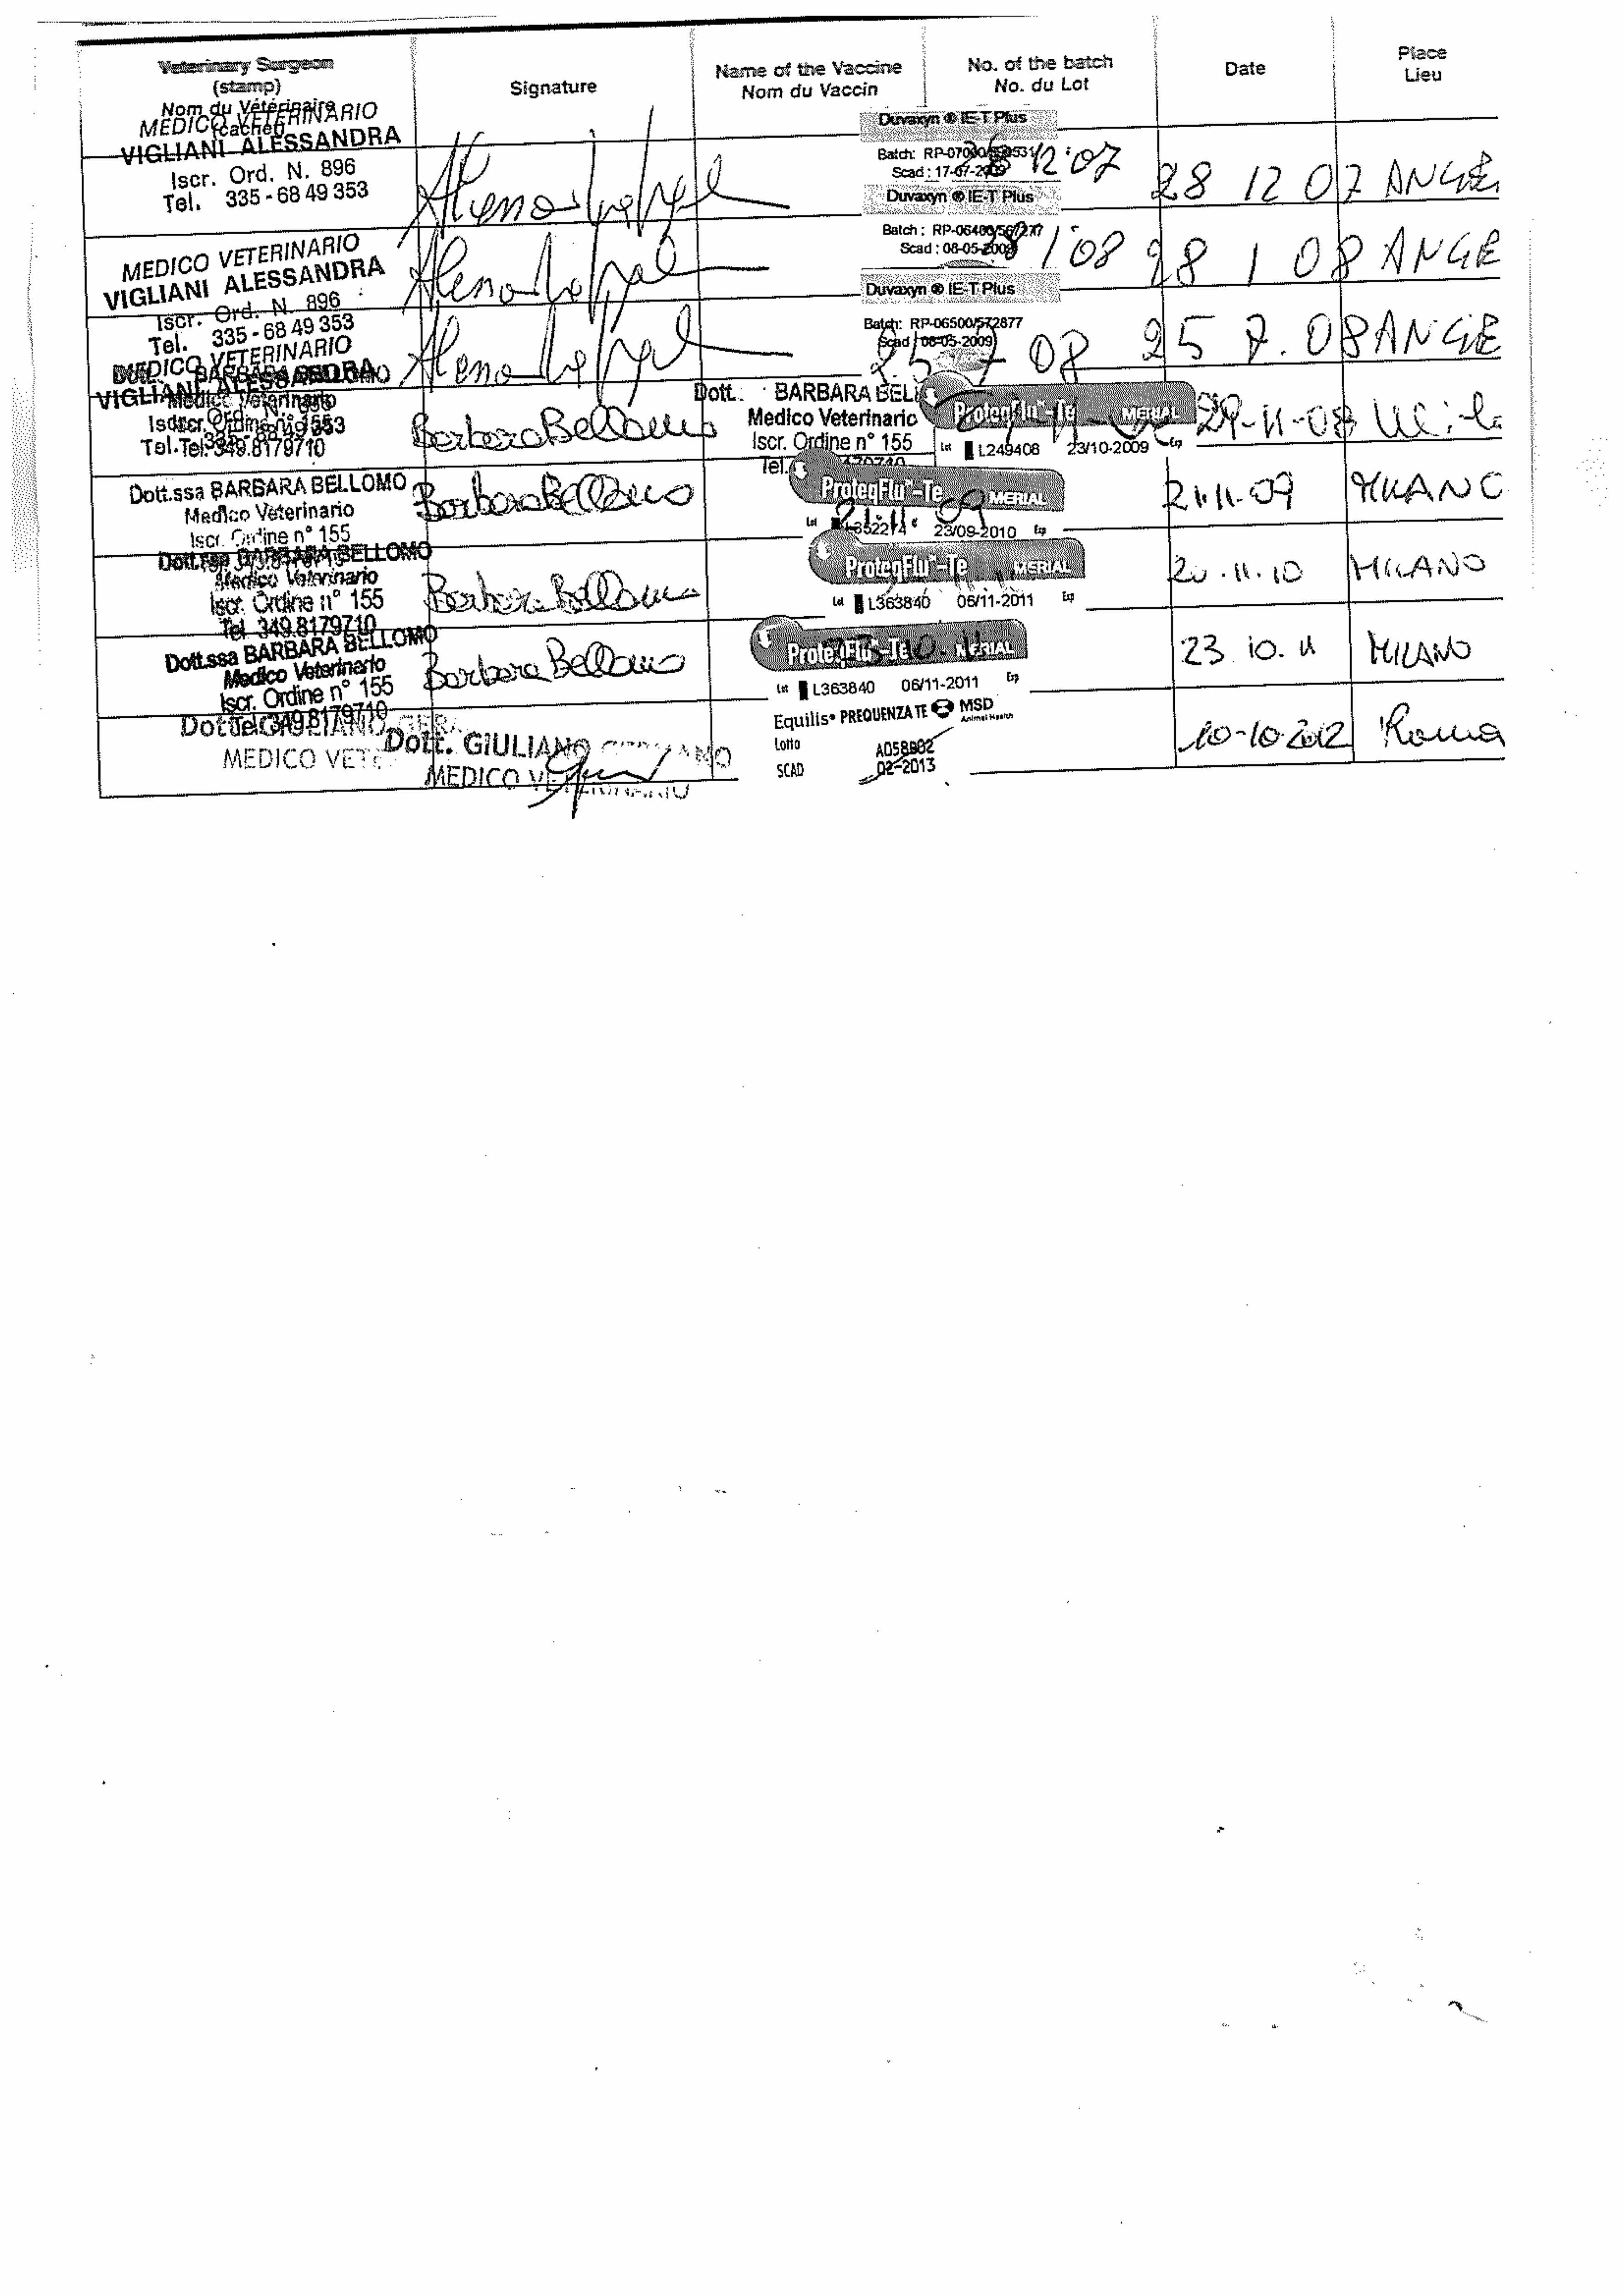 Veterinary Surgeon
(stamp)
Nom du Vétérinaire
(cachet)
Signature
Name of the Vaccine
Nom du Vaccin
No. of the batch
No. du Lot
Date
Place
Lieu
MEDICO VETERINARIO
VIGLIANI ALESSANDRA
Iscr. Ord. N. 896
Tel. 335-68 49 353
Duvaxyn ® IE-T Plus
Scad : 17-07-2009
12 07
28 12 07 ANGE
MEDICO VETERINARIO
VIGLIANI ALESSANDRA
Iscr. Ord. N. 896
Tel. 335-68 49 353
Duvaxyn ® IE-T Plus
Scad : 08-05-2009
1 08
28 1 08 ANGE
MEDICO VETERINARIO
VIGLIANI ALESSANDRA
Duvaxyn ® IE-T Plus
Batch: RP-06500/572877
Scad : 08-05-2009
25 7 08
25 7.08 ANGE
Medico Veterinario
Tel. 349.8179710
Barbara Bellomo
Dott. BARBARA BEL
Medico Veterinario
Iscr. Ordine n° 155
Tel.
ProteqFlu™-Te MERIAL
Lot L249408 23/10-2009 Exp
29-11-08
Dott.ssa BARBARA BELLOMO
Medico Veterinario
Iscr. Ordine n° 155
Barbara Bellomo
ProteqFlu™-Te MERIAL
21.11.09
Lot L352214 23/09-2010 Exp
21.11.09
MILANO
Dott.ssa BARBARA BELLOMO
Medico Veterinario
Iscr. Ordine n° 155
Tel. 349.8179710
Barbara Bellomo
ProteqFlu™-Te MERIAL
Lot L363840 06/11-2011 Exp
20.11.10
MILANO
Dott.ssa BARBARA BELLOMO
Medico Veterinario
Iscr. Ordine n° 155
Tel. 349.8179710
Barbara Bellomo
ProteqFlu™-Te MERIAL
Lot L363840 06/11-2011 Exp
23.10.11
MILANO
MEDICO
Dott. GIULIANO
MEDICO VETERINARIO
Equilis® PREQUENZA TE MSD
Animal Health
Lotto
SCAD 02-2013
10-10-2012
Roma